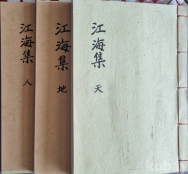 江海集 天
江海集 地
江海集 人